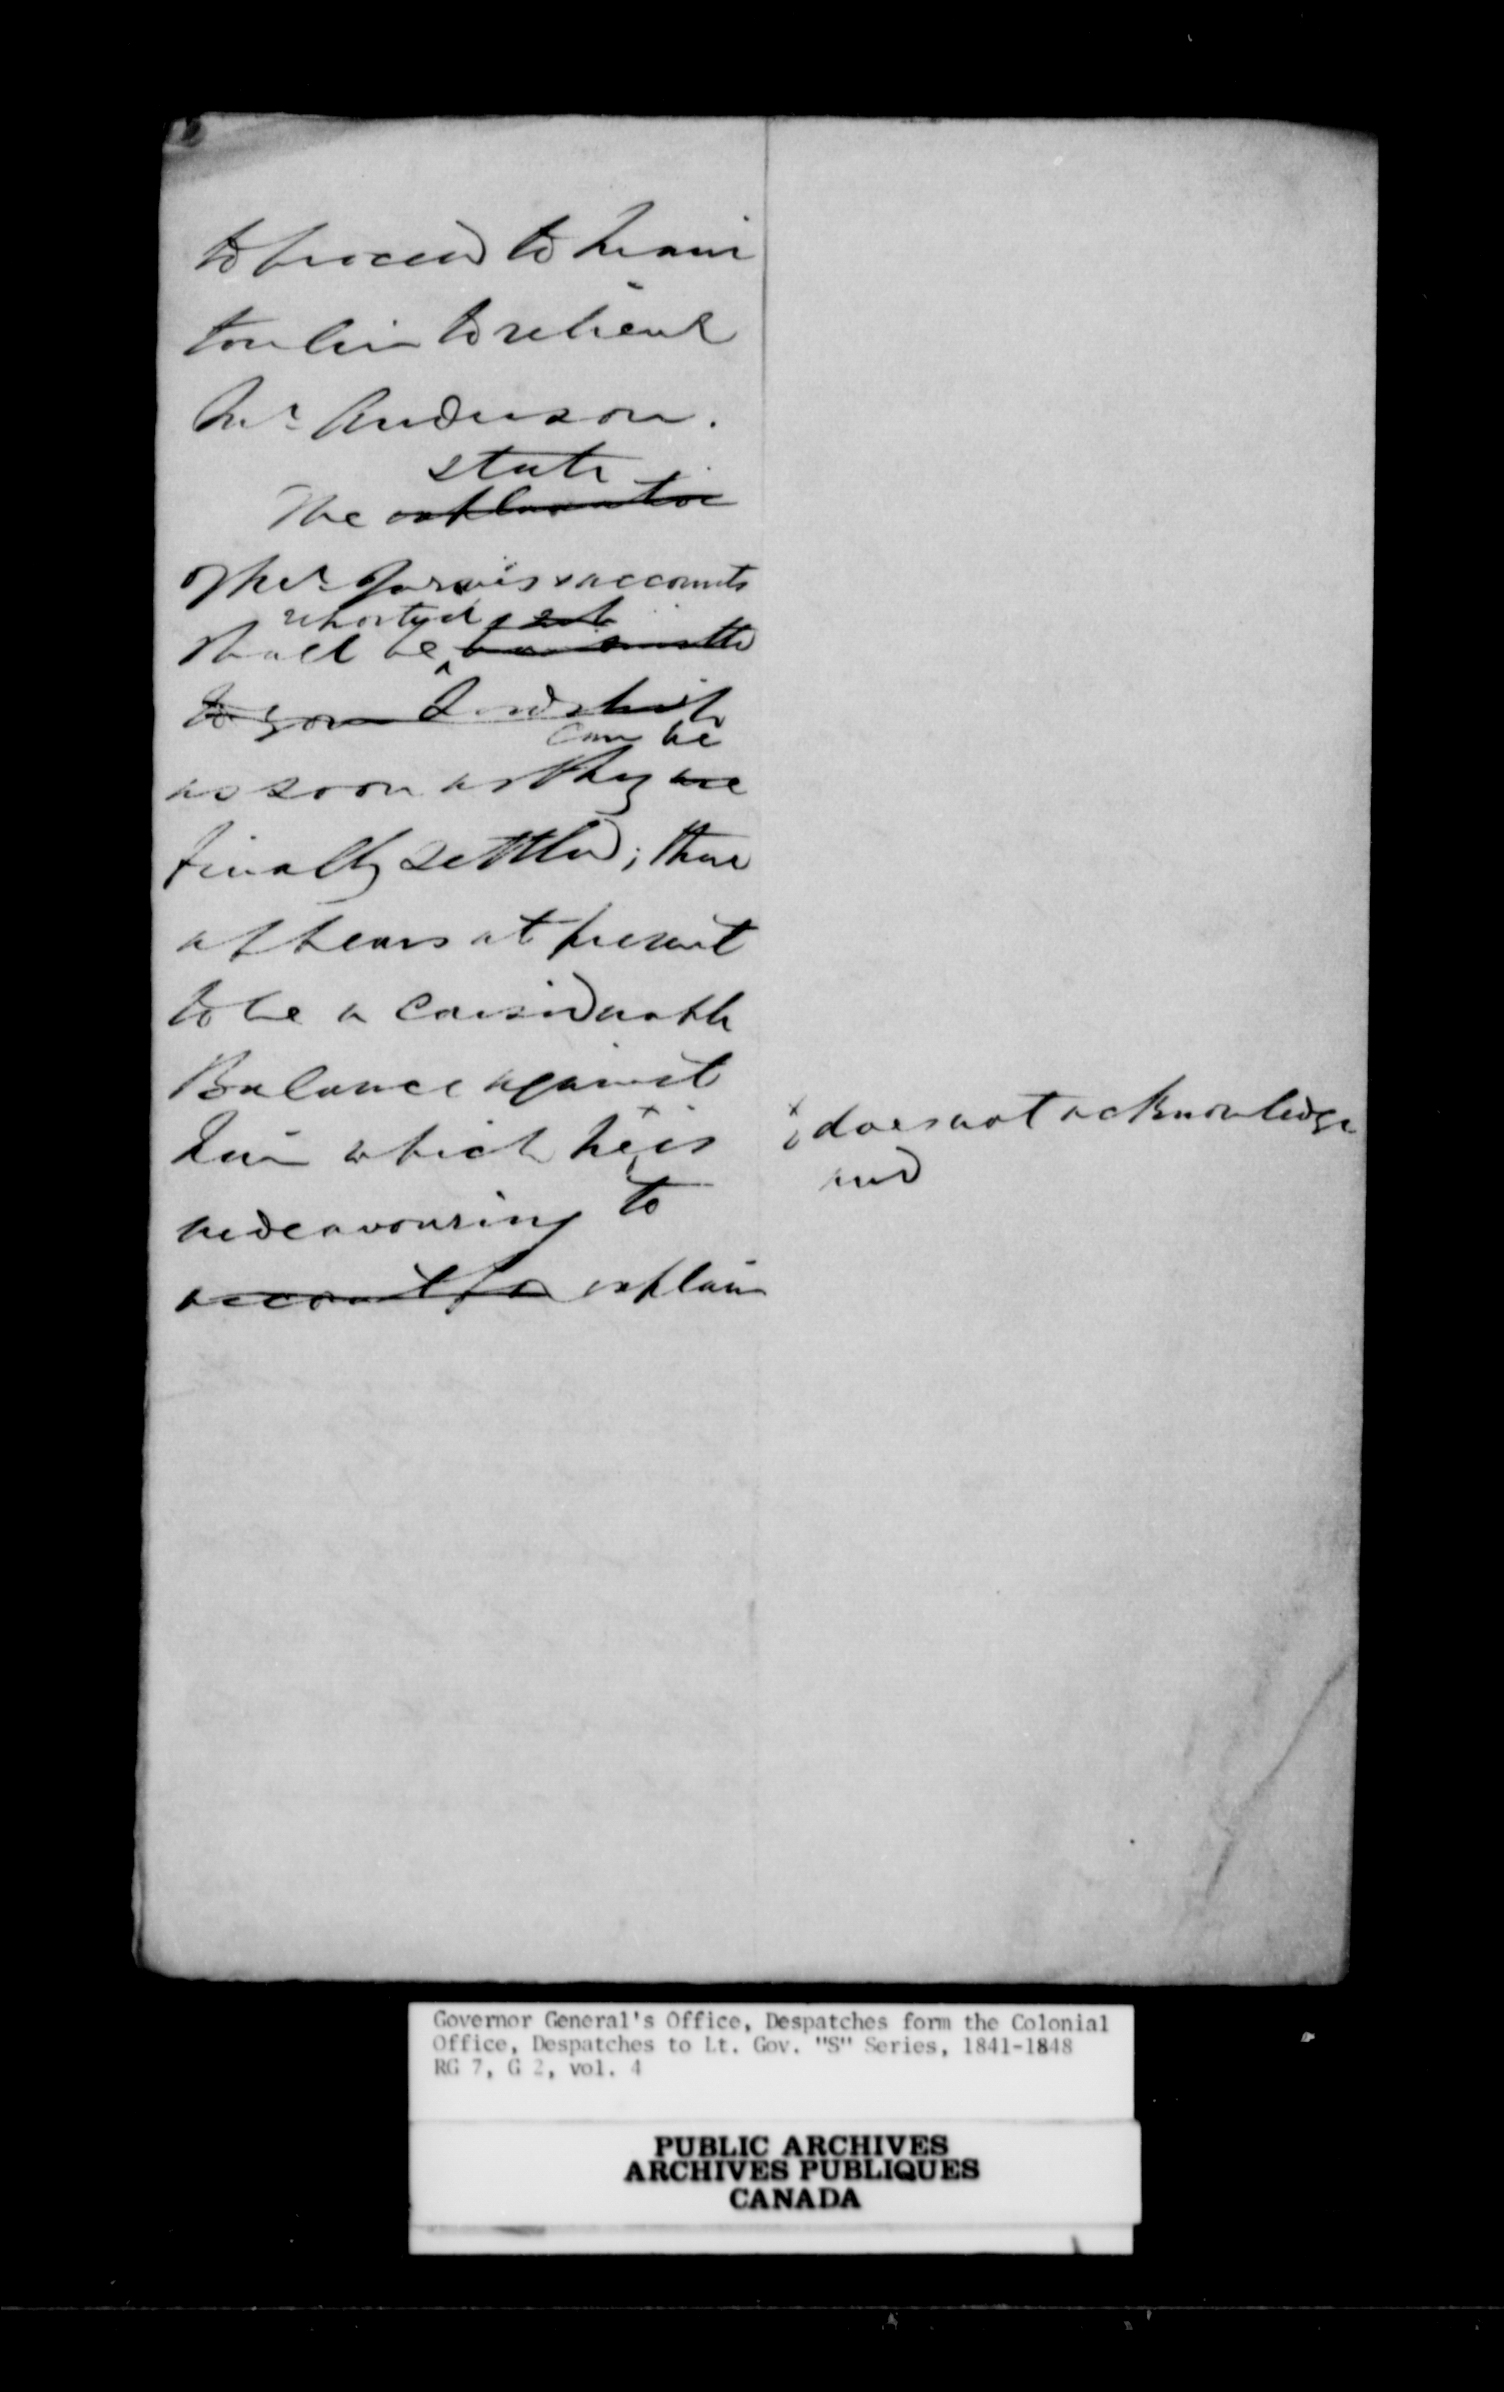 to proceed to Mani
toulin to relieve
Mr. Anderson.
state
The explanation
of Mr. Jarvis's accounts
reported sent
shall be transmitted
to your Lordship
can be
as soon as they are
finally settled; there
appears at present
to be a considerable
Balance against
him which he x is
endeavouring to
account for explain
x does not acknowledge
and
Governor General's Office, Despatches form the Colonial
Office, Despatches to Lt. Gov. "S" Series, 1841-1848
RG 7, G 2, vol. 4
PUBLIC ARCHIVES
ARCHIVES PUBLIQUES
CANADA